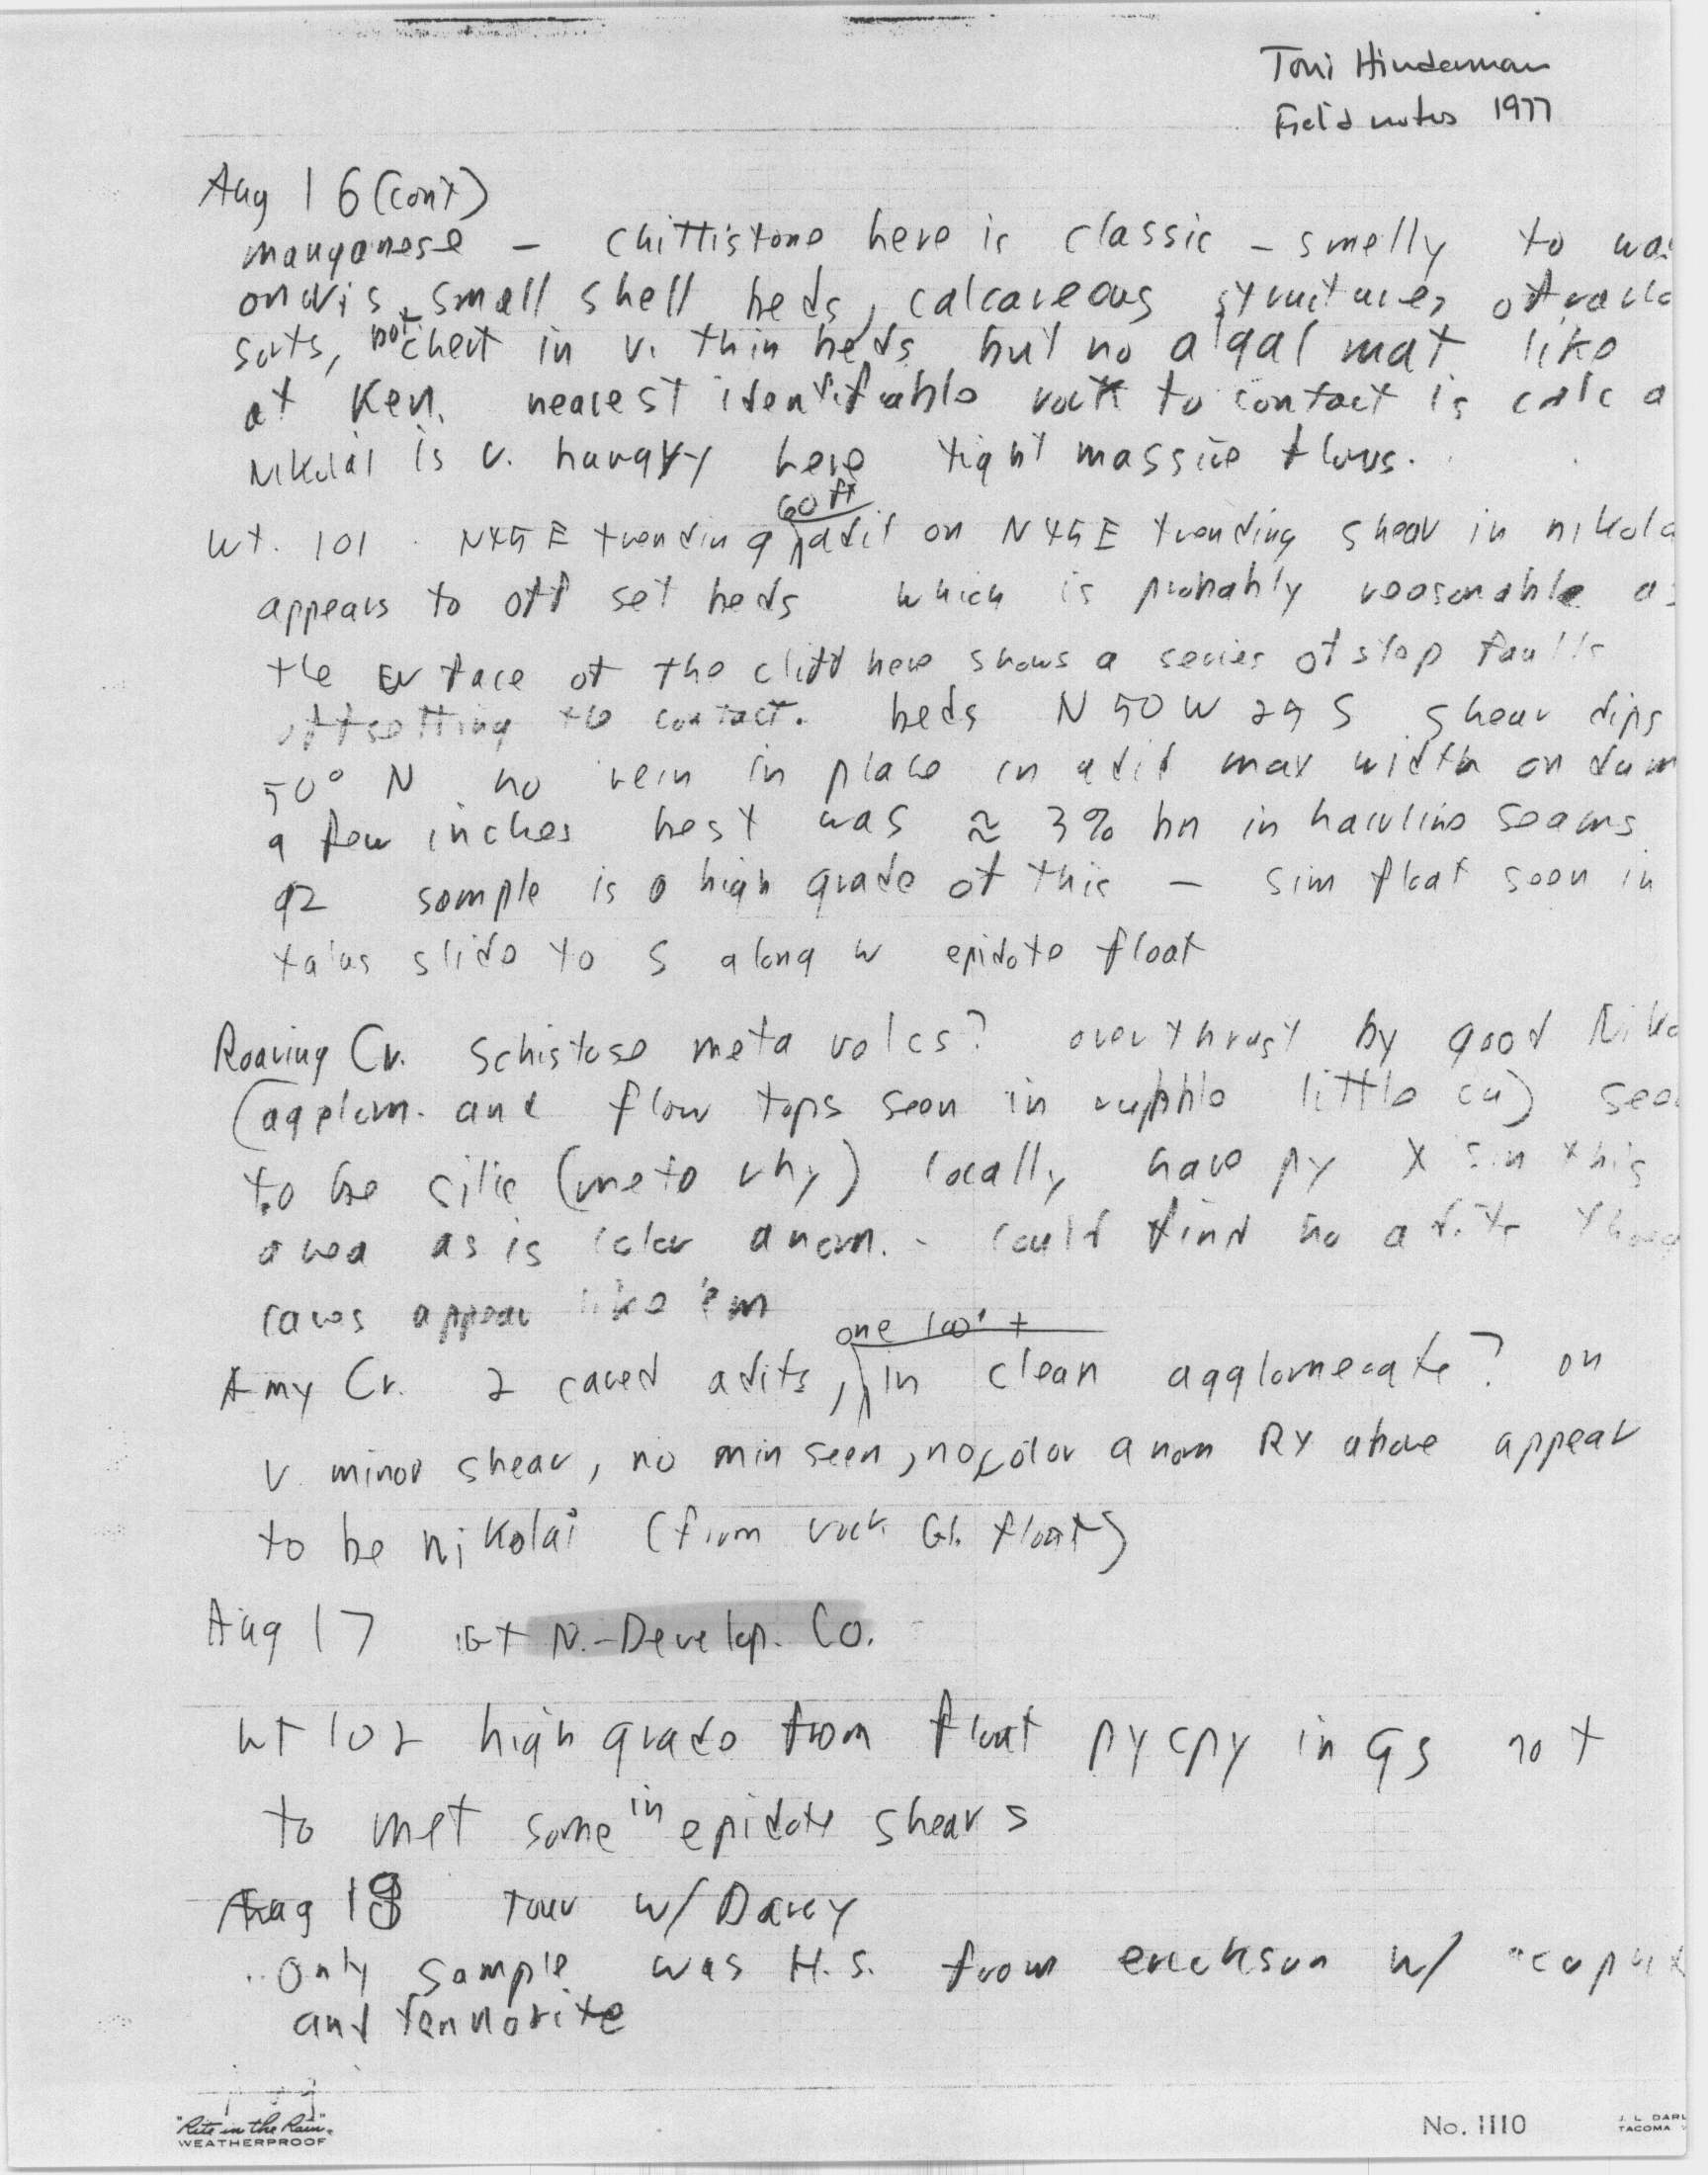 Toni Hinderman
Field notes 1977
Aug 16 (cont)
manganese - chittistone here is classic - smelly to
small shell beds, calcareous structures of
sorts, not chert in v. thin beds but no algal mat like
at Ken. nearest identifiable rock to contact is calc a
Nikolai is v. hungry here tight massive flows.
60 ft
wt. 101 . N45E trending adit on N45E trending shear in nikola
appears to off set beds which is probably reasonable as
the face of the cliff here shows a series of step faults
offsetting the contact. beds N 50 W 25 S shear dips
50° N no vein in place in adit max width on dum
a few inches best was ≈ 3% bn in hairline seams
qz sample is a high grade of this - sim float seen in
talus slide to S along w epidote float
Roaring Cr. Schistose meta volcs? overthrust by good Niko
(agglom. and flow tops seen in rubble little cu) see
to be silic (meto rhy) locally have py xs in this
area as is color anom. - could find no adits thoug
caves appear like 'em
one 100' +
Amy Cr. 2 caved adits, in clean agglomerate? on
v minor shear, no min seen, no color anom RX above appear
to be nikolai (from rock Gl. float)
Aug 17 Gt N.-Develop. Co.
wt 102 high grade from float py cpy in GS not
to met some in epidote shears
Aug 18 tour w/ Darcy
only sample was H.S. from erickson w/
and tennorite
"Rite in the Rain"
WEATHERPROOF
No. 1110
J. L. DARL
TACOMA